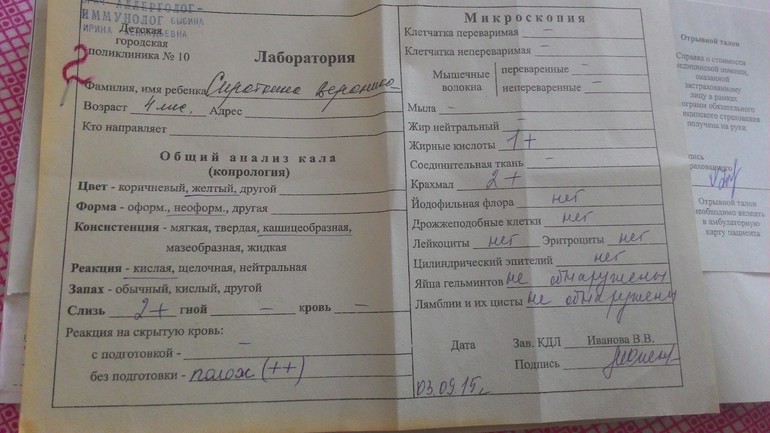 АЛЛЕРГОЛОГ-
ИММУНОЛОГ
Детская
городская
поликлиника № 10
Лаборатория
Фамилия, имя ребенка Сироткина Вероника
Возраст 4 мес. Адрес
Кто направляет
Общий анализ кала
(копрология)
Цвет - коричневый, желтый, другой
Форма - оформ., неоформ., другая
Консистенция - мягкая, твердая, кашицеобразная,
мазеобразная, жидкая
Реакция - кислая, щелочная, нейтральная
Запах - обычный, кислый, другой
Слизь 2+ гной – кровь –
Реакция на скрытую кровь:
с подготовкой - –
без подготовки - полож (++)
Микроскопия
Клетчатка переваримая –
Клетчатка непереваримая –
Мышечные волокна
переваренные –
непереваренные –
Мыла –
Жир нейтральный –
Жирные кислоты 1+
Соединительная ткань –
Крахмал 2+
Йодофильная флора нет
Дрожжеподобные клетки нет
Лейкоциты нет Эритроциты нет
Цилиндрический эпителий нет
Яйца гельминтов не обнаружены
Лямблии и их цисты не обнаружены
Дата Зав. КДЛ Иванова В.В.
Подпись
03.09.15г.
Отрывной талон
Справка о стоимости
медицинской помощи,
оказанной
застрахованному
лицу в рамках
программ обязательного
медицинского страхования
получена на руки
Отрывной талон
необходимо вклеить
в амбулаторную
карту пациента